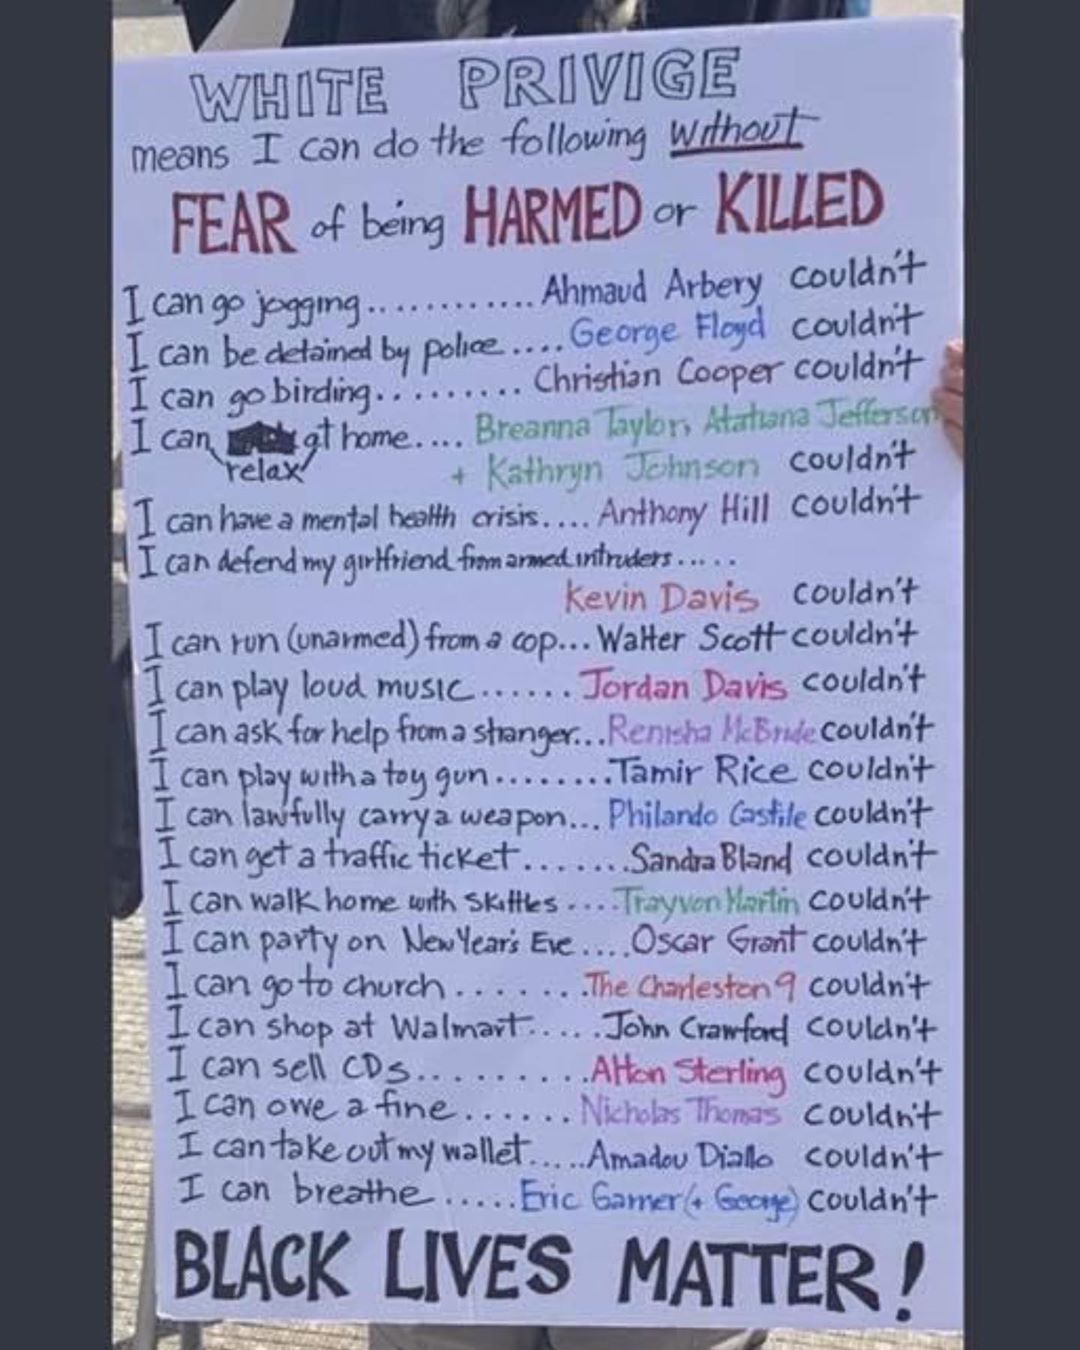 WHITE PRIVIGE
means I can do the following without
FEAR of being HARMED or KILLED
I can go jogging............ Ahmaud Arbery couldn't
I can be detained by police.... George Floyd couldn't
I can go birding......... Christian Cooper couldn't
I can at home.... Breanna Taylor, Atahana Jefferson
relax + Kathryn Johnson couldn't
I can have a mental health crisis.... Anthony Hill couldn't
I can defend my girlfriend from armed intruders.....
Kevin Davis couldn't
I can run (unarmed) from a cop... Walter Scott couldn't
I can play loud music...... Jordan Davis couldn't
I can ask for help from a stranger... Renisha McBride couldn't
I can play with a toy gun........ Tamir Rice couldn't
I can lawfully carry a weapon... Philando Castile couldn't
I can get a traffic ticket....... Sandra Bland couldn't
I can walk home with skittles .... Trayvon Martin couldn't
I can party on New Year's Eve .... Oscar Grant couldn't
I can go to church ....... The Charleston 9 couldn't
I can shop at Walmart..... John Crawford couldn't
I can sell CDs.......... Alton Sterling couldn't
I can owe a fine...... Nicholas Thomas couldn't
I can take out my wallet..... Amadou Diallo couldn't
I can breathe ..... Eric Garner (+ George) couldn't
BLACK LIVES MATTER!